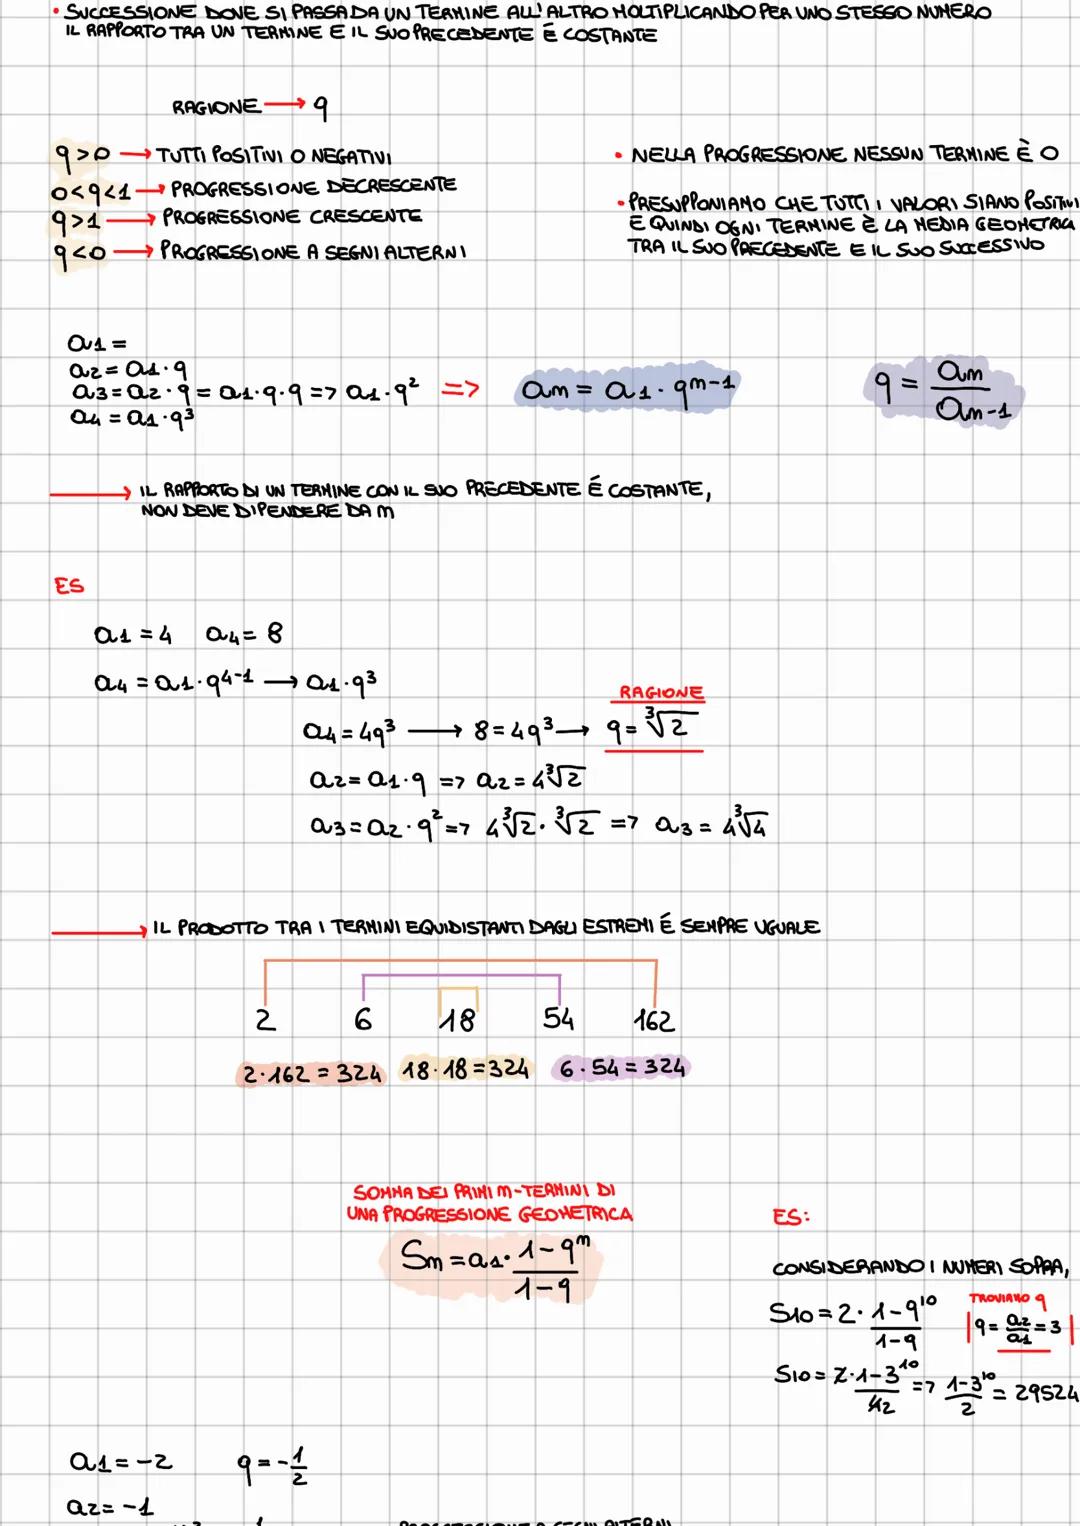 • SUCCESSIONE DOVE SI PASSA DA UN TERMINE ALL'ALTRO MOLTIPLICANDO PER UNO STESSO NUMERO
IL RAPPORTO TRA UN TERMINE E IL SUO PRECEDENTE É COSTANTE
RAGIONE → q
q>0 → TUTTI POSITIVI O NEGATIVI
0<q<1 → PROGRESSIONE DECRESCENTE
q>1 → PROGRESSIONE CRESCENTE
q<0 → PROGRESSIONE A SEGNI ALTERNI
• NELLA PROGRESSIONE NESSUN TERMINE È 0
• PRESUPPONIAMO CHE TUTTI I VALORI SIANO POSITIVI
E QUINDI OGNI TERMINE È LA MEDIA GEOMETRICA
TRA IL SUO PRECEDENTE E IL SUO SUCCESSIVO
a1 =
a2 = a1·q
a3 = a2·q = a1·q·q => a1·q² => am = a1·q^m-1
a4 = a1·q³
q = am/am-1
→ IL RAPPORTO DI UN TERMINE CON IL SUO PRECEDENTE É COSTANTE,
NON DEVE DIPENDERE DA m
ES
a1 = 4 a4 = 8
a4 = a1·q^4-1 → a1·q³
RAGIONE
a4 = 4q³ → 8 = 4q³ → q = ³√2
a2 = a1·q => a2 = 4³√2
a3 = a2·q² => 4³√2·³√2 => a3 = 4³√4
→ IL PRODOTTO TRA I TERMINI EQUIDISTANTI DAGLI ESTREMI É SEMPRE UGUALE
2 6 18 54 162
2·162 = 324 18·18 = 324 6·54 = 324
SOMMA DEI PRIMI m-TERMINI DI
UNA PROGRESSIONE GEOMETRICA
Sm = a1·1-q^m/1-q
ES:
CONSIDERANDO I NUMERI SOPRA,
S10 = 2·1-q^10/1-q
TROVIAMO q
q = a2/a1 = 3
S10 = 2·1-3^10/-2 => 1-3^10/2 = 29524
a1 = -2 q = -1/2
a2 = -1